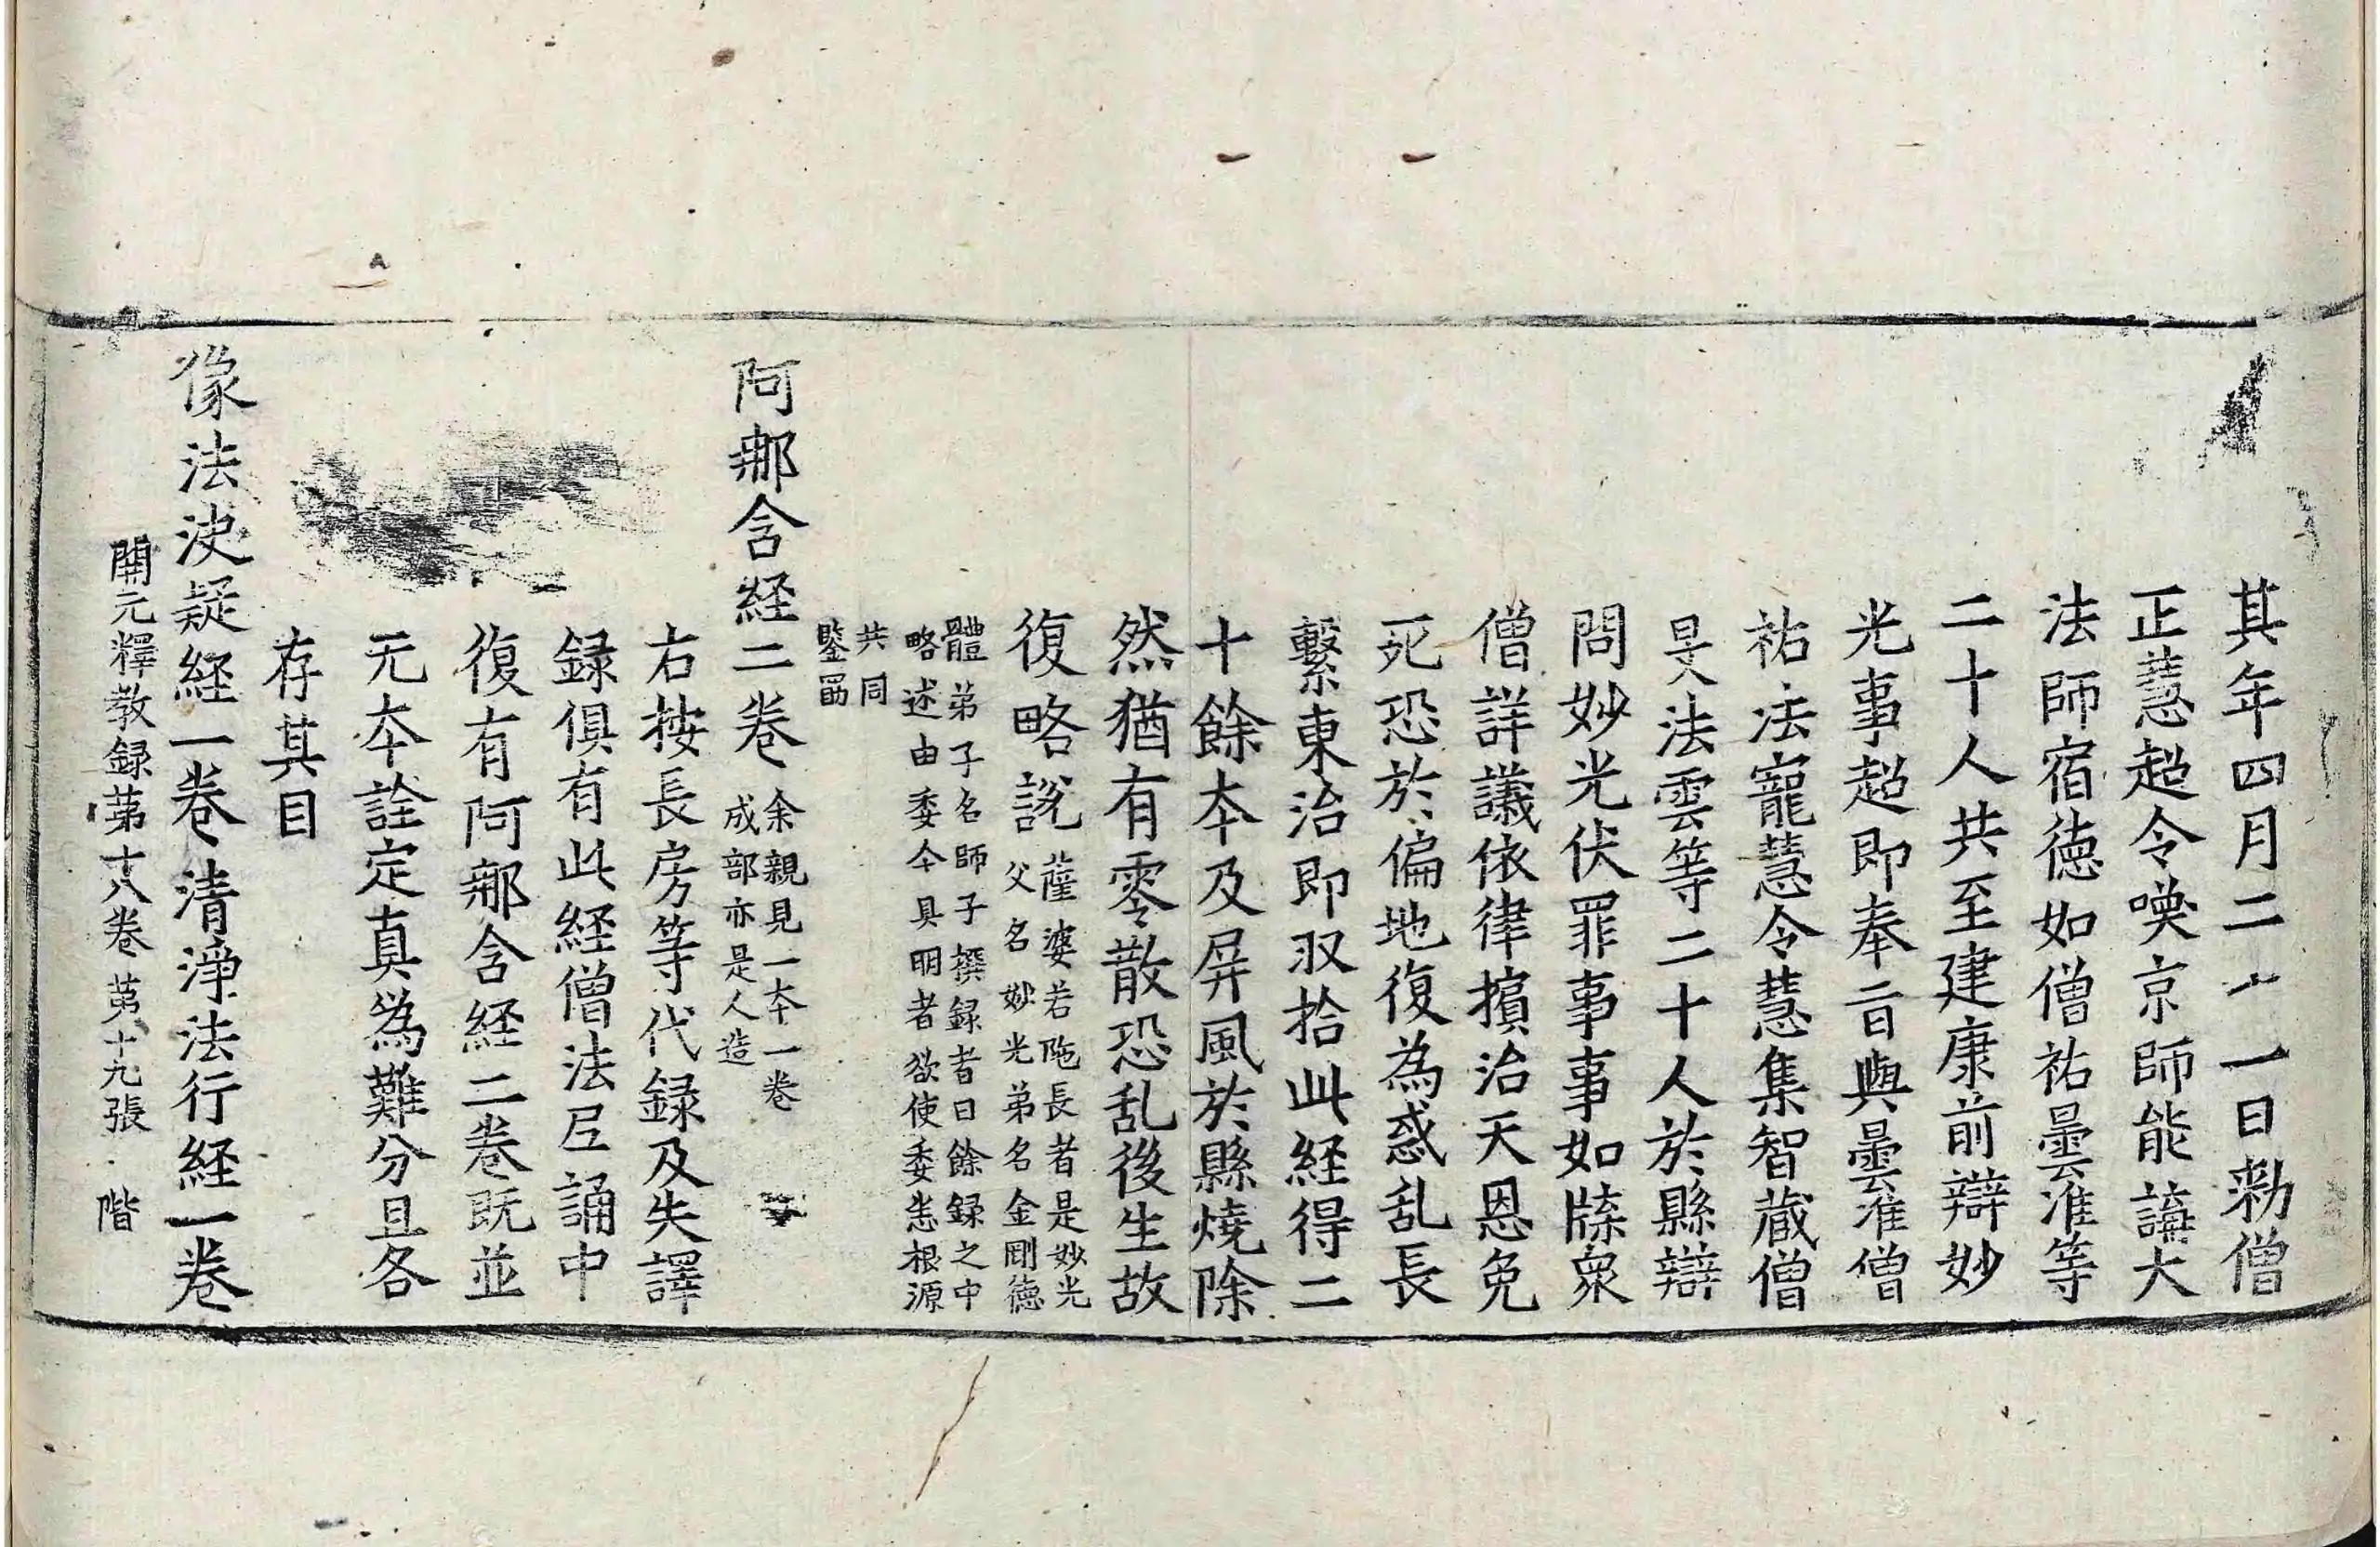 其年四月二十一日勑僧
正慧超令喚京師能講大
法師宿德如僧祐曇准等
二十人共至建康前辯妙
光事超即奉旨與曇准僧
祐法寵慧令慧集智藏僧
旻法雲等二十人於縣辯
問妙光伏罪事事如牒衆
僧詳議依律擯治天恩免
死恐於偏地復為惑乱長
繫東治即収拾此経得二
十餘本及屏風於縣燒除
然猶有零散恐乱後生故
復略說薩婆若陁長者是妙光
父名妙光弟名金剛德
體弟子名師子撰録者曰餘録之中
略述由委今具明者欲使委悉根源
共同
鑒㽞
阿那含経二卷余親見一本一卷
成部亦是人造
右按長房等代録及失譯
録俱有此経僧法尼誦中
復有阿那含経二卷既並
无本詮定真為難分且各
存其目
像法決疑経一卷清淨法行経一卷
開元釋教録苐十八卷 苐十九張 階